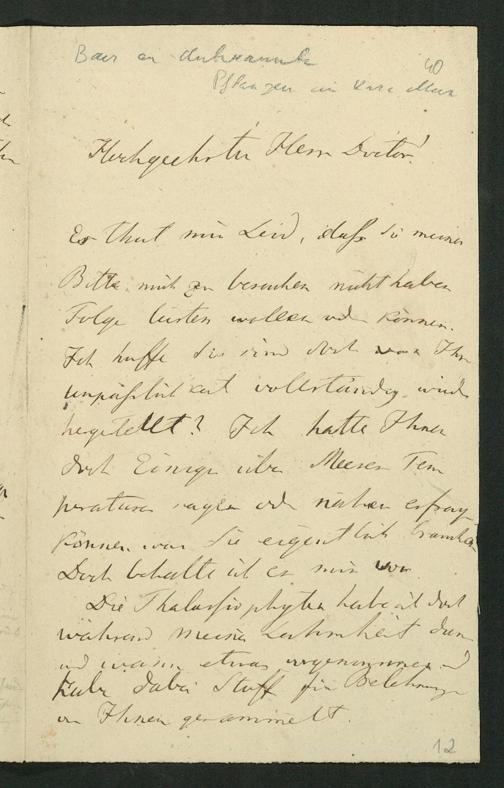 Baer an Unbekannt 40
Pflanzen im Kara Meer
Hochgeehrter Herr Doctor!
Es thut mir Leid, daß Sie meiner
Bitte mich zu besuchen nicht haben
Folge leisten wollen oder können.
Ich hoffe Sie sind doch von Ihrer
Unpäßlichkeit vollständig wieder
hergestellt? Ich hatte Ihnen
doch Einiges über Meeres Tem
peraturen sagen oder näher erfragen
können was Sie eigentlich brauchen
Doch behalte ich es mir vor.
Die Thalassiophyten habe ich doch
während meiner Lahmheit dann
und wann etwas vorgenommen und
habe dabei Stoff für Belehrung
von Ihnen gesammelt.
12